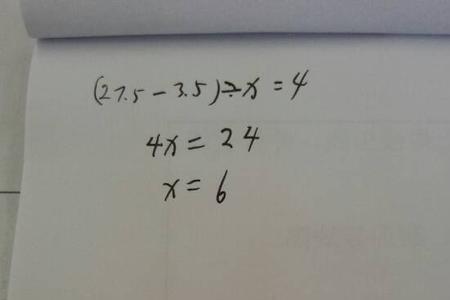 (27.5-3.5)÷x=4
4x=24
x=6